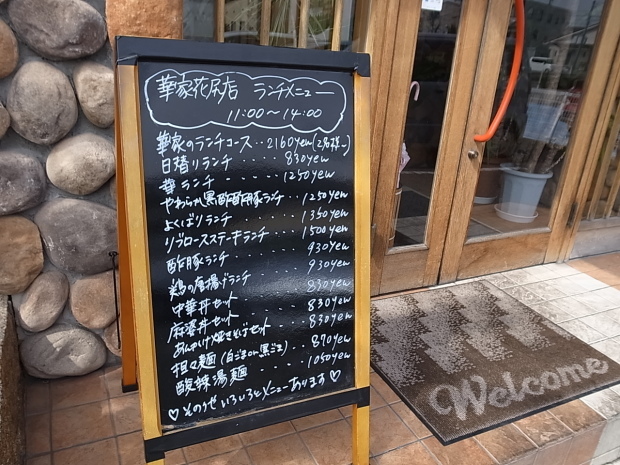 華家花尻店 ランチメニュー
11:00～14:00
華家のランチコース‥2160yen(2名様～)
日替りランチ‥‥830yen
華ランチ‥‥‥1250yen
やわらか黒酢酢豚ランチ‥1250yen
よくばりランチ‥‥1350yen
リブロースステーキランチ‥1500yen
酢豚ランチ‥‥‥930yen
鶏の唐揚げランチ‥‥930yen
中華丼セット‥‥830yen
麻婆丼セット‥‥830yen
あんかけ焼きそばセット‥830yen
担々麺(白ごまor黒ごま)‥870yen
酸辣湯麺‥‥‥1050yen
♡その他いろいろとメニューあります♡
Welcome